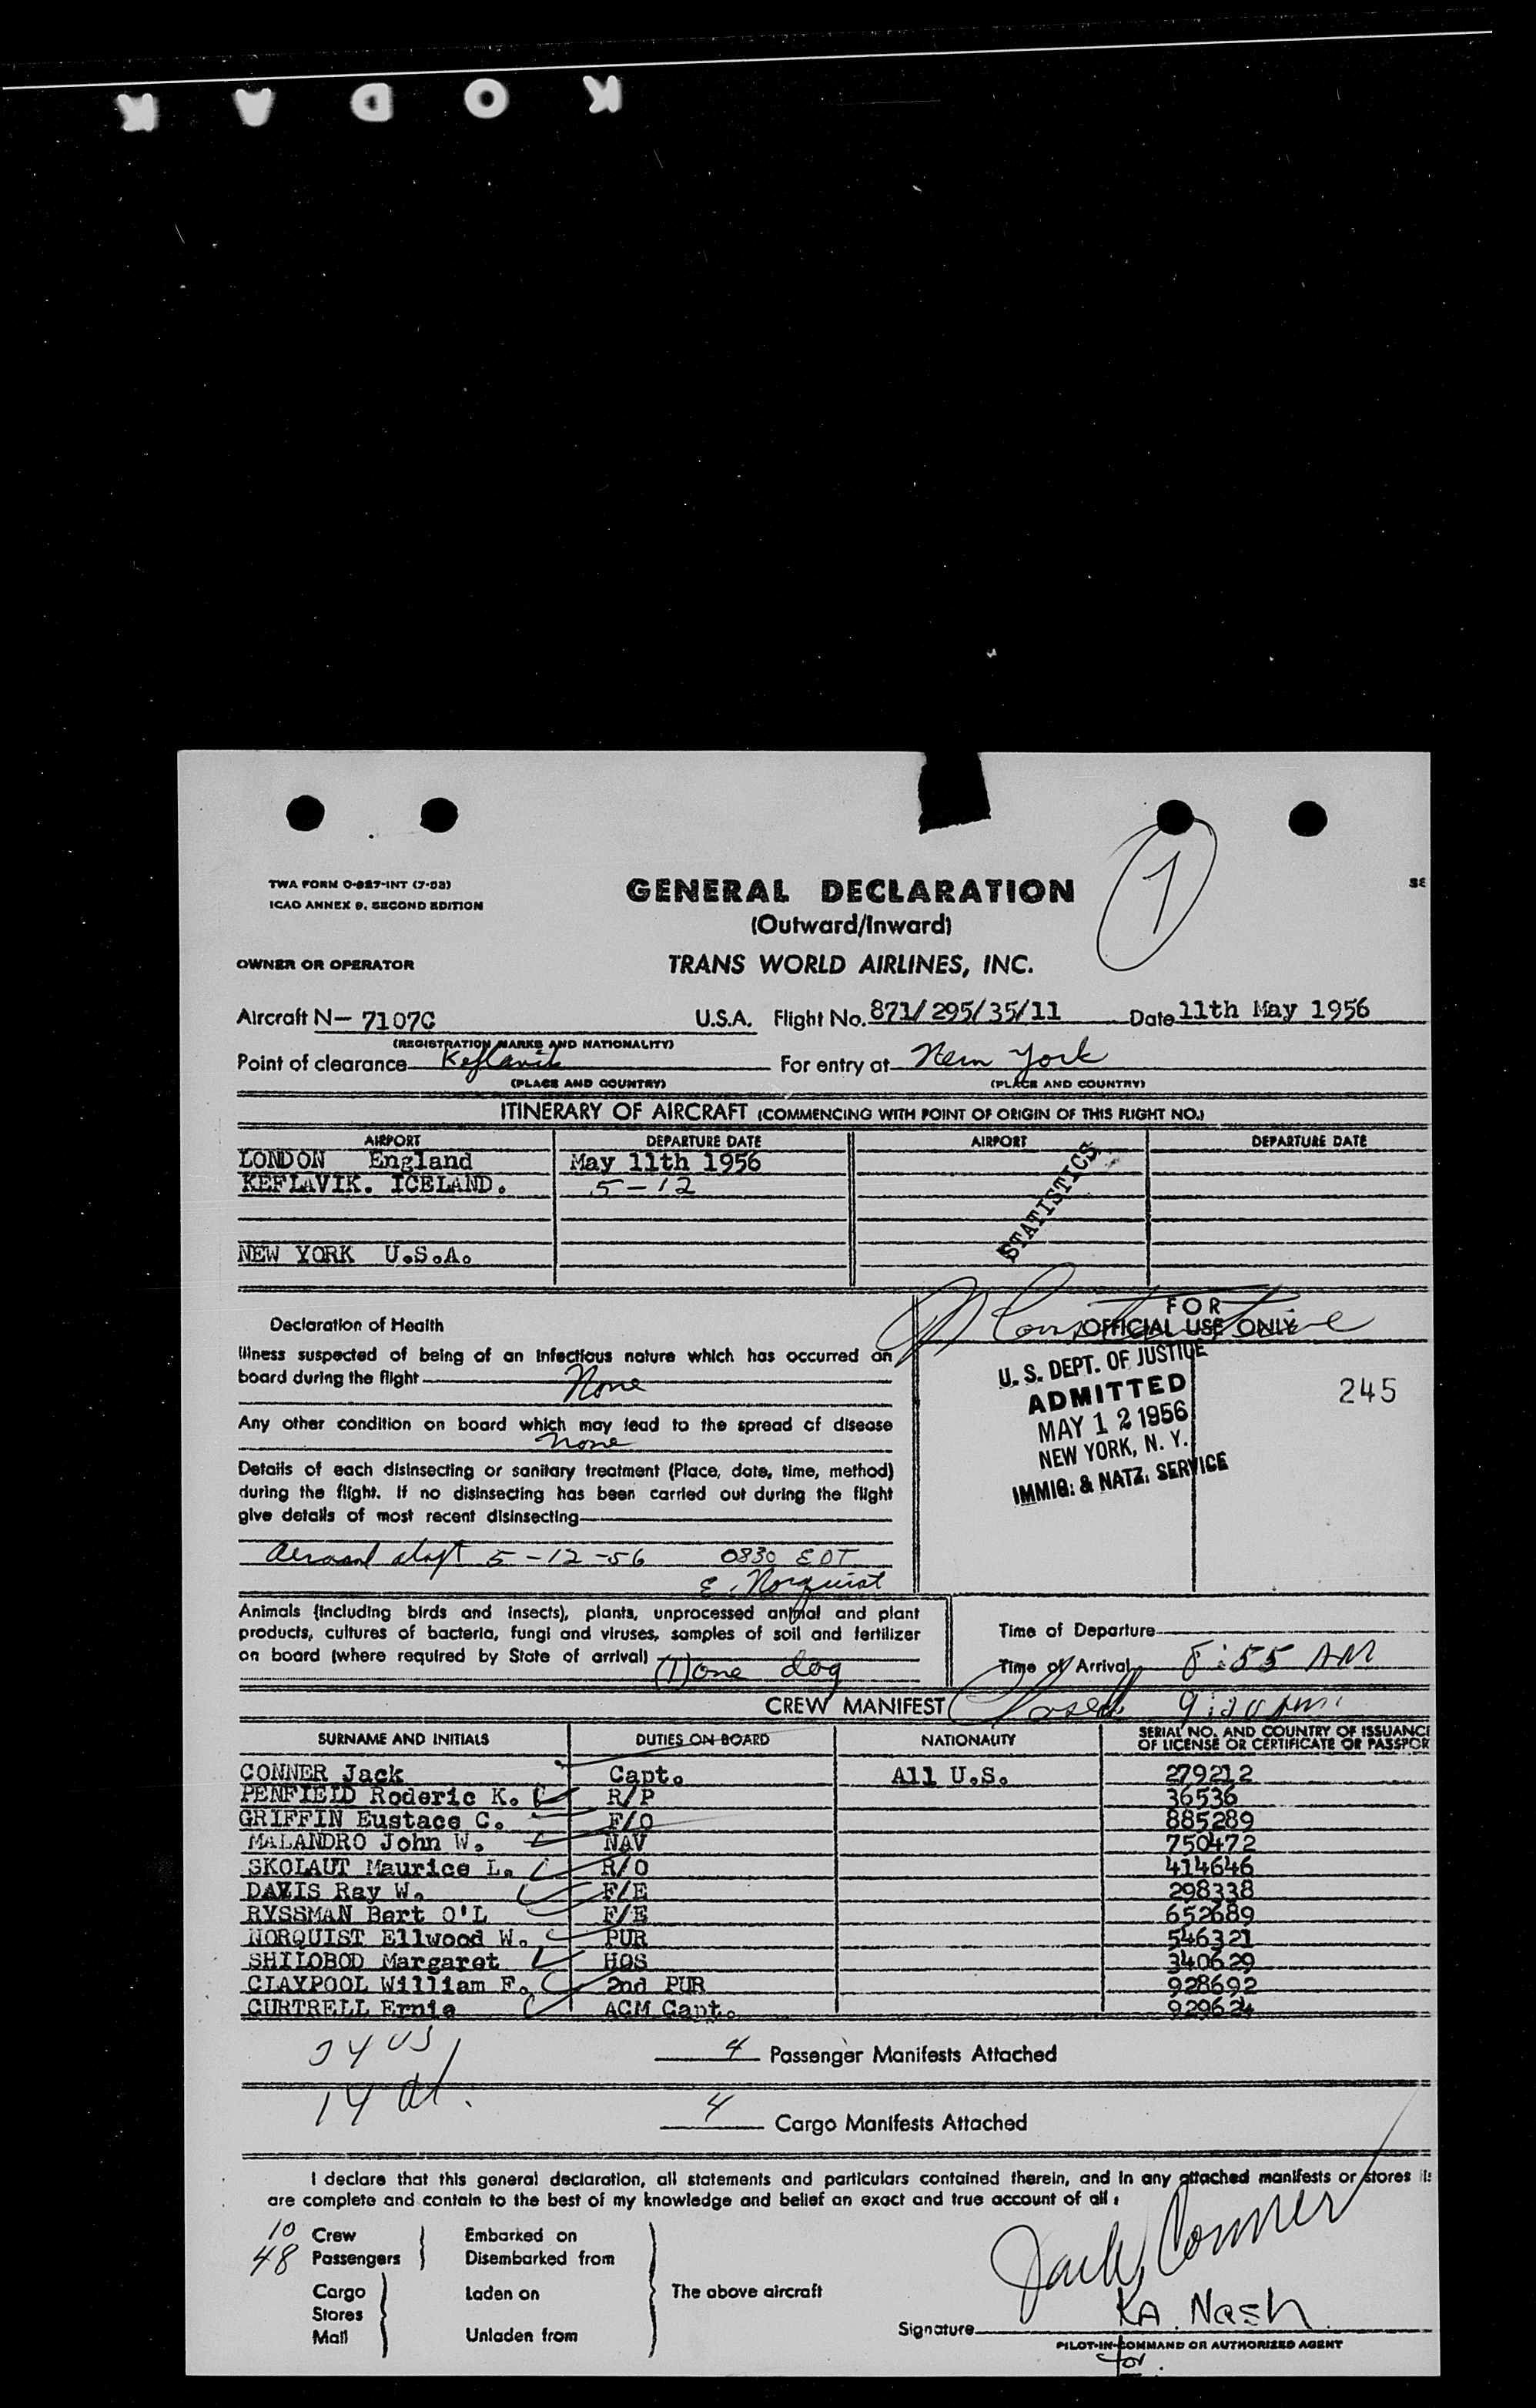 KODAK
TWA FORM O-927-INT (7-53)
ICAO ANNEX 9, SECOND EDITION
GENERAL DECLARATION
(Outward/Inward)
1
SE
OWNER OR OPERATOR
TRANS WORLD AIRLINES, INC.
Aircraft N- 7107C U.S.A. Flight No. 871/295/35/11 Date 11th May 1956
(REGISTRATION MARKS AND NATIONALITY)
Point of clearance Keflavik For entry at New York
(PLACE AND COUNTRY) (PLACE AND COUNTRY)
ITINERARY OF AIRCRAFT (COMMENCING WITH POINT OF ORIGIN OF THIS FLIGHT NO.)
AIRPORT DEPARTURE DATE AIRPORT DEPARTURE DATE
LONDON England May 11th 1956
KEFLAVIK. ICELAND. 5-12
STATISTICS
NEW YORK U.S.A.
FOR
OFFICIAL USE ONLY
Declaration of Health
Illness suspected of being of an infectious nature which has occurred on
board during the flight None
Any other condition on board which may lead to the spread of disease
None
Details of each disinsecting or sanitary treatment (Place, date, time, method)
during the flight. If no disinsecting has been carried out during the flight
give details of most recent disinsecting
5-12-56 0830 EDT
E. Norquist
U. S. DEPT. OF JUSTICE
ADMITTED
MAY 12 1956
NEW YORK, N. Y.
IMMIG. & NATZ. SERVICE
245
Animals (including birds and insects), plants, unprocessed animal and plant
products, cultures of bacteria, fungi and viruses, samples of soil and fertilizer
on board (where required by State of arrival) (1) one dog
Time of Departure
Time of Arrival 8:55 AM
CREW MANIFEST
SURNAME AND INITIALS DUTIES ON BOARD NATIONALITY SERIAL NO. AND COUNTRY OF ISSUANC
OF LICENSE OR CERTIFICATE OR PASSPOR
CONNER Jack Capt. All U.S. 279212
PENFIELD Roderic K. R/P 36536
GRIFFIN Eustace C. F/O 885289
MALANDRO John W. NAV 750472
SKOLAUT Maurice L. R/O 414646
DAVIS Ray W. F/E 298338
RYSSMAN Bert O'L F/E 652689
NORQUIST Ellwood W. PUR 546321
SHILOBOD Margaret HOS 340629
CLAYPOOL William F. 2nd PUR 928692
CURTRELL Ernie ACM Capt. 929624
4 Passenger Manifests Attached
4 Cargo Manifests Attached
I declare that this general declaration, all statements and particulars contained therein, and in any attached manifests or stores
are complete and contain to the best of my knowledge and belief an exact and true account of all:
10 Crew Embarked on
48 Passengers Disembarked from
Cargo Laden on The above aircraft
Stores
Mail Unladen from
Jack Conner
Signature KA Nash
PILOT-IN-COMMAND OR AUTHORIZED AGENT
for.